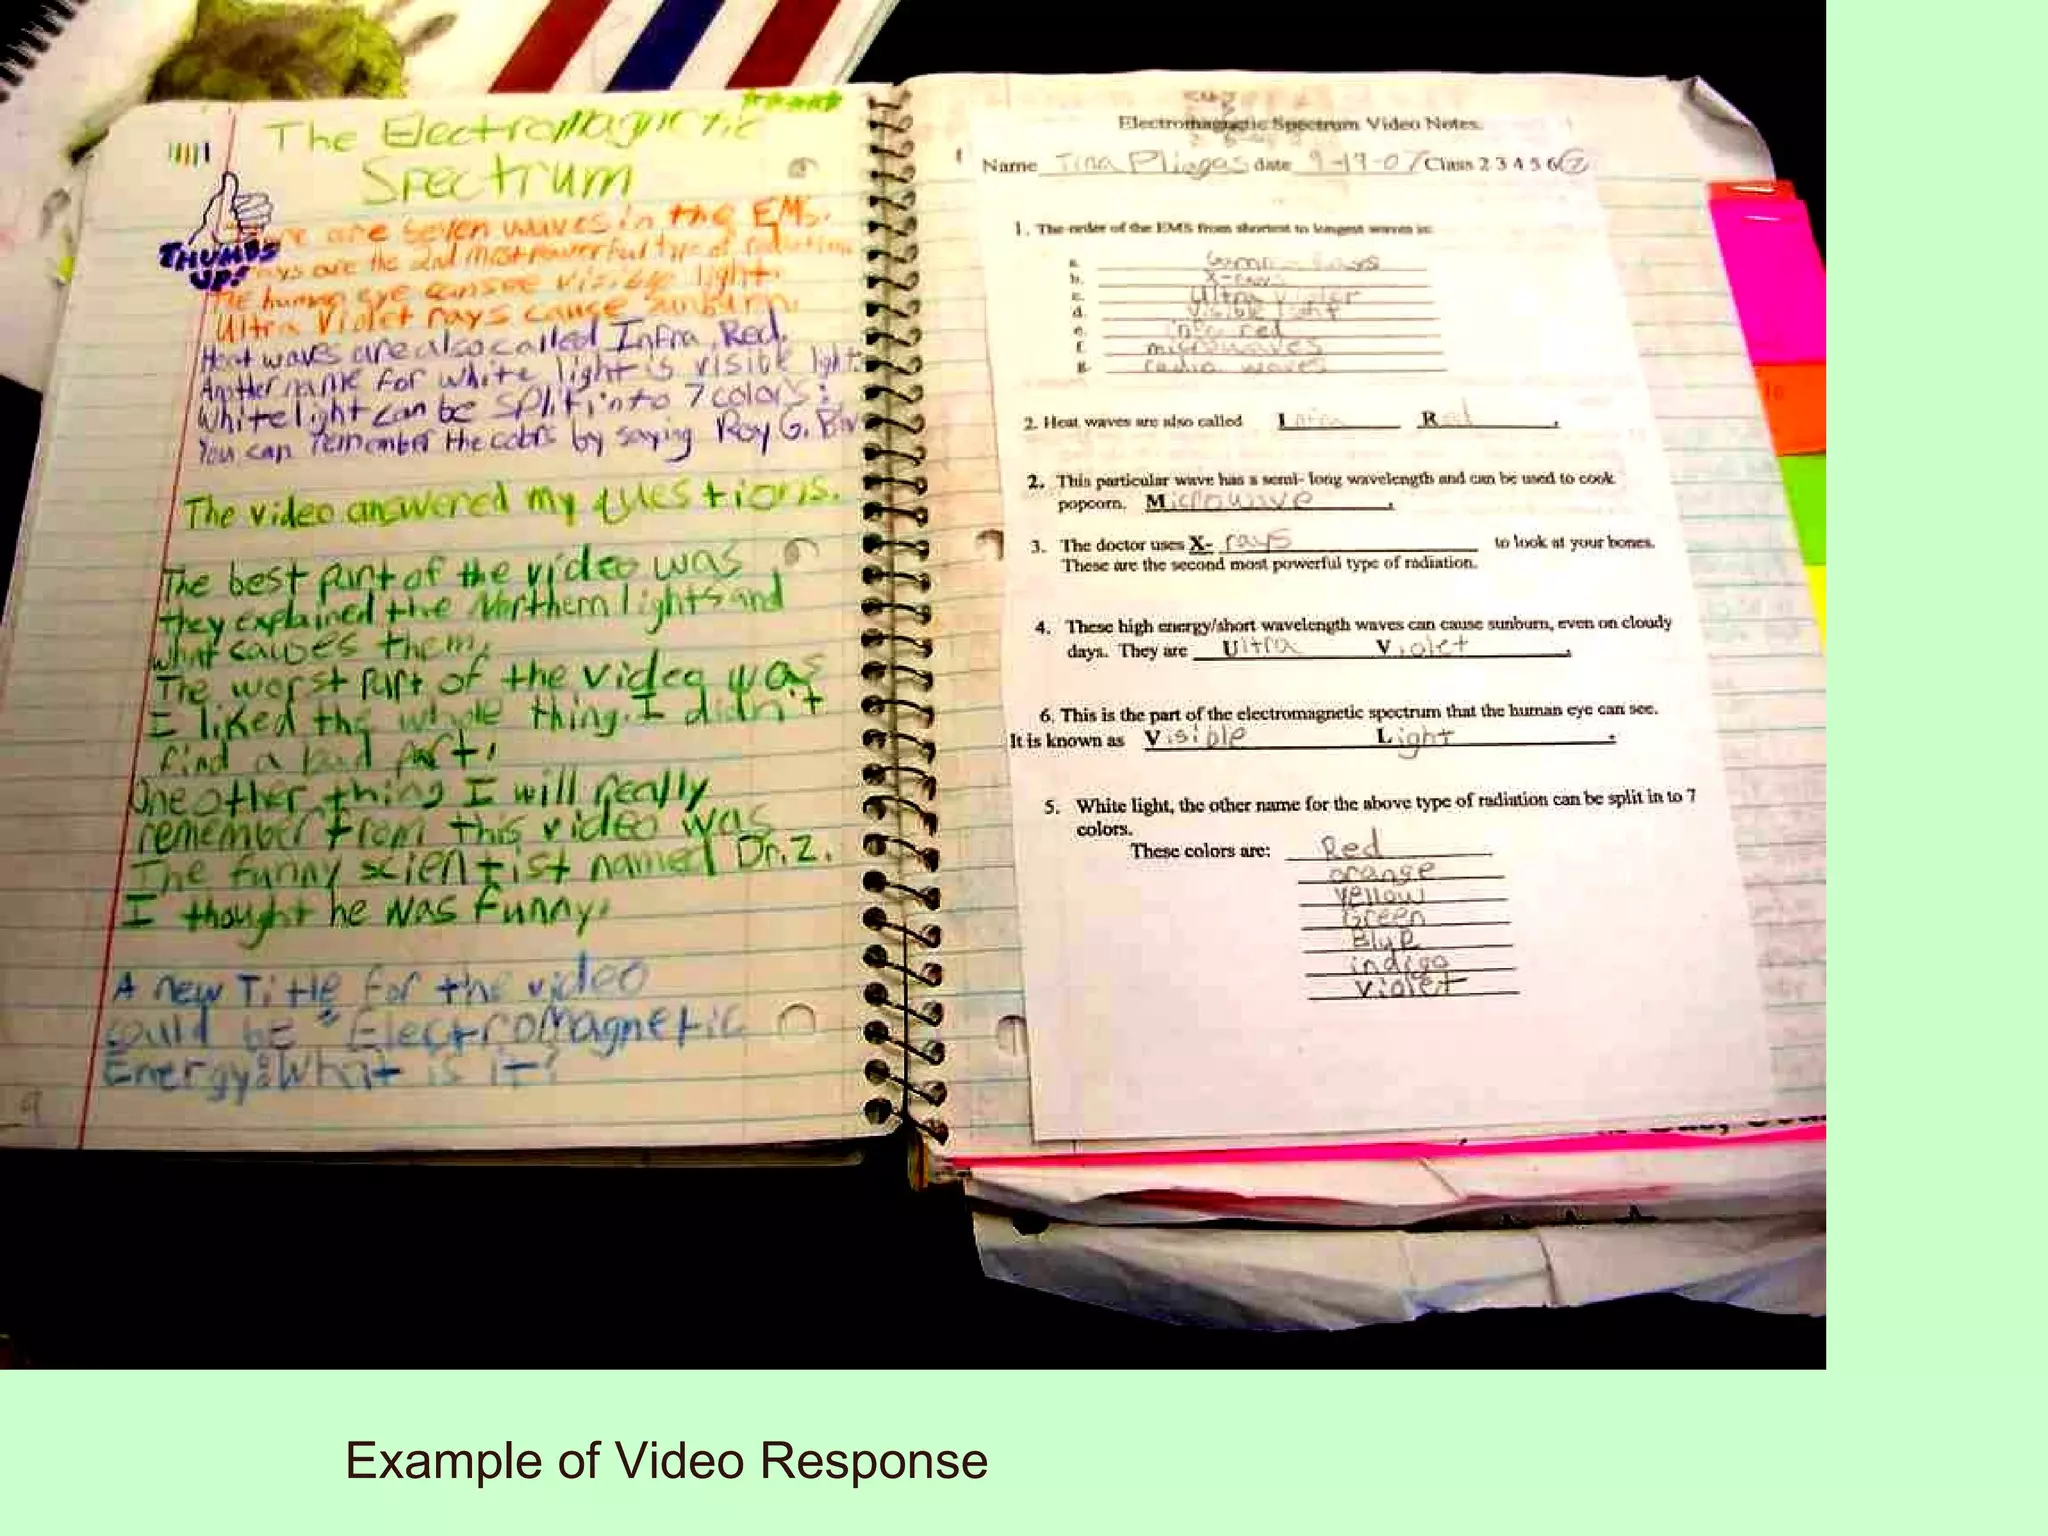 The ElectroMagnetic
Spectrum
THUMBS
UP!
are seven waves in the EMS.
rays are the 2nd most powerful type of radiation.
The human eye can see visible light.
Ultra Violet rays cause sunburn.
Heat waves are also called Infra Red.
Another name for white light is visible light.
White light can be split into 7 colors:
You can remember the colors by saying Roy G. Biv
The video answered my questions.
The best part of the video was
they explained the Northern lights and
what causes them.
The worst part of the video was
I liked the whole thing. I didn't
find a bad part.
One other thing I will really
remember from this video was
The funny scientist named Dr. Z.
I thought he was funny.
A new Title for the video
could be "ElectroMagnetic
Energy: What is it?
9
Electromagnetic Spectrum Video Notes
Name Tina Pliagas date 9-19-07 Class 2 3 4 5 6 7
1. The order of the EMS from shortest to longest waves is:
a. Gama-Rays
b. X-rays
c. Ultra violet
d. Visible light
e. infra red
f. microwaves
g. radio waves
2. Heat waves are also called Infra Red.
2. This particular wave has a semi- long wavelength and can be used to cook
popcorn. Microwave.
3. The doctor uses X- rays to look at your bones.
These are the second most powerful type of radiation.
4. These high energy/short wavelength waves can cause sunburn, even on cloudy
days. They are Ultra Violet.
6. This is the part of the electromagnetic spectrum that the human eye can see.
It is known as Visible Light.
5. White light, the other name for the above type of radiation can be split in to 7
colors.
These colors are: Red
orange
yellow
Green
Blue
indigo
violet
Example of Video Response